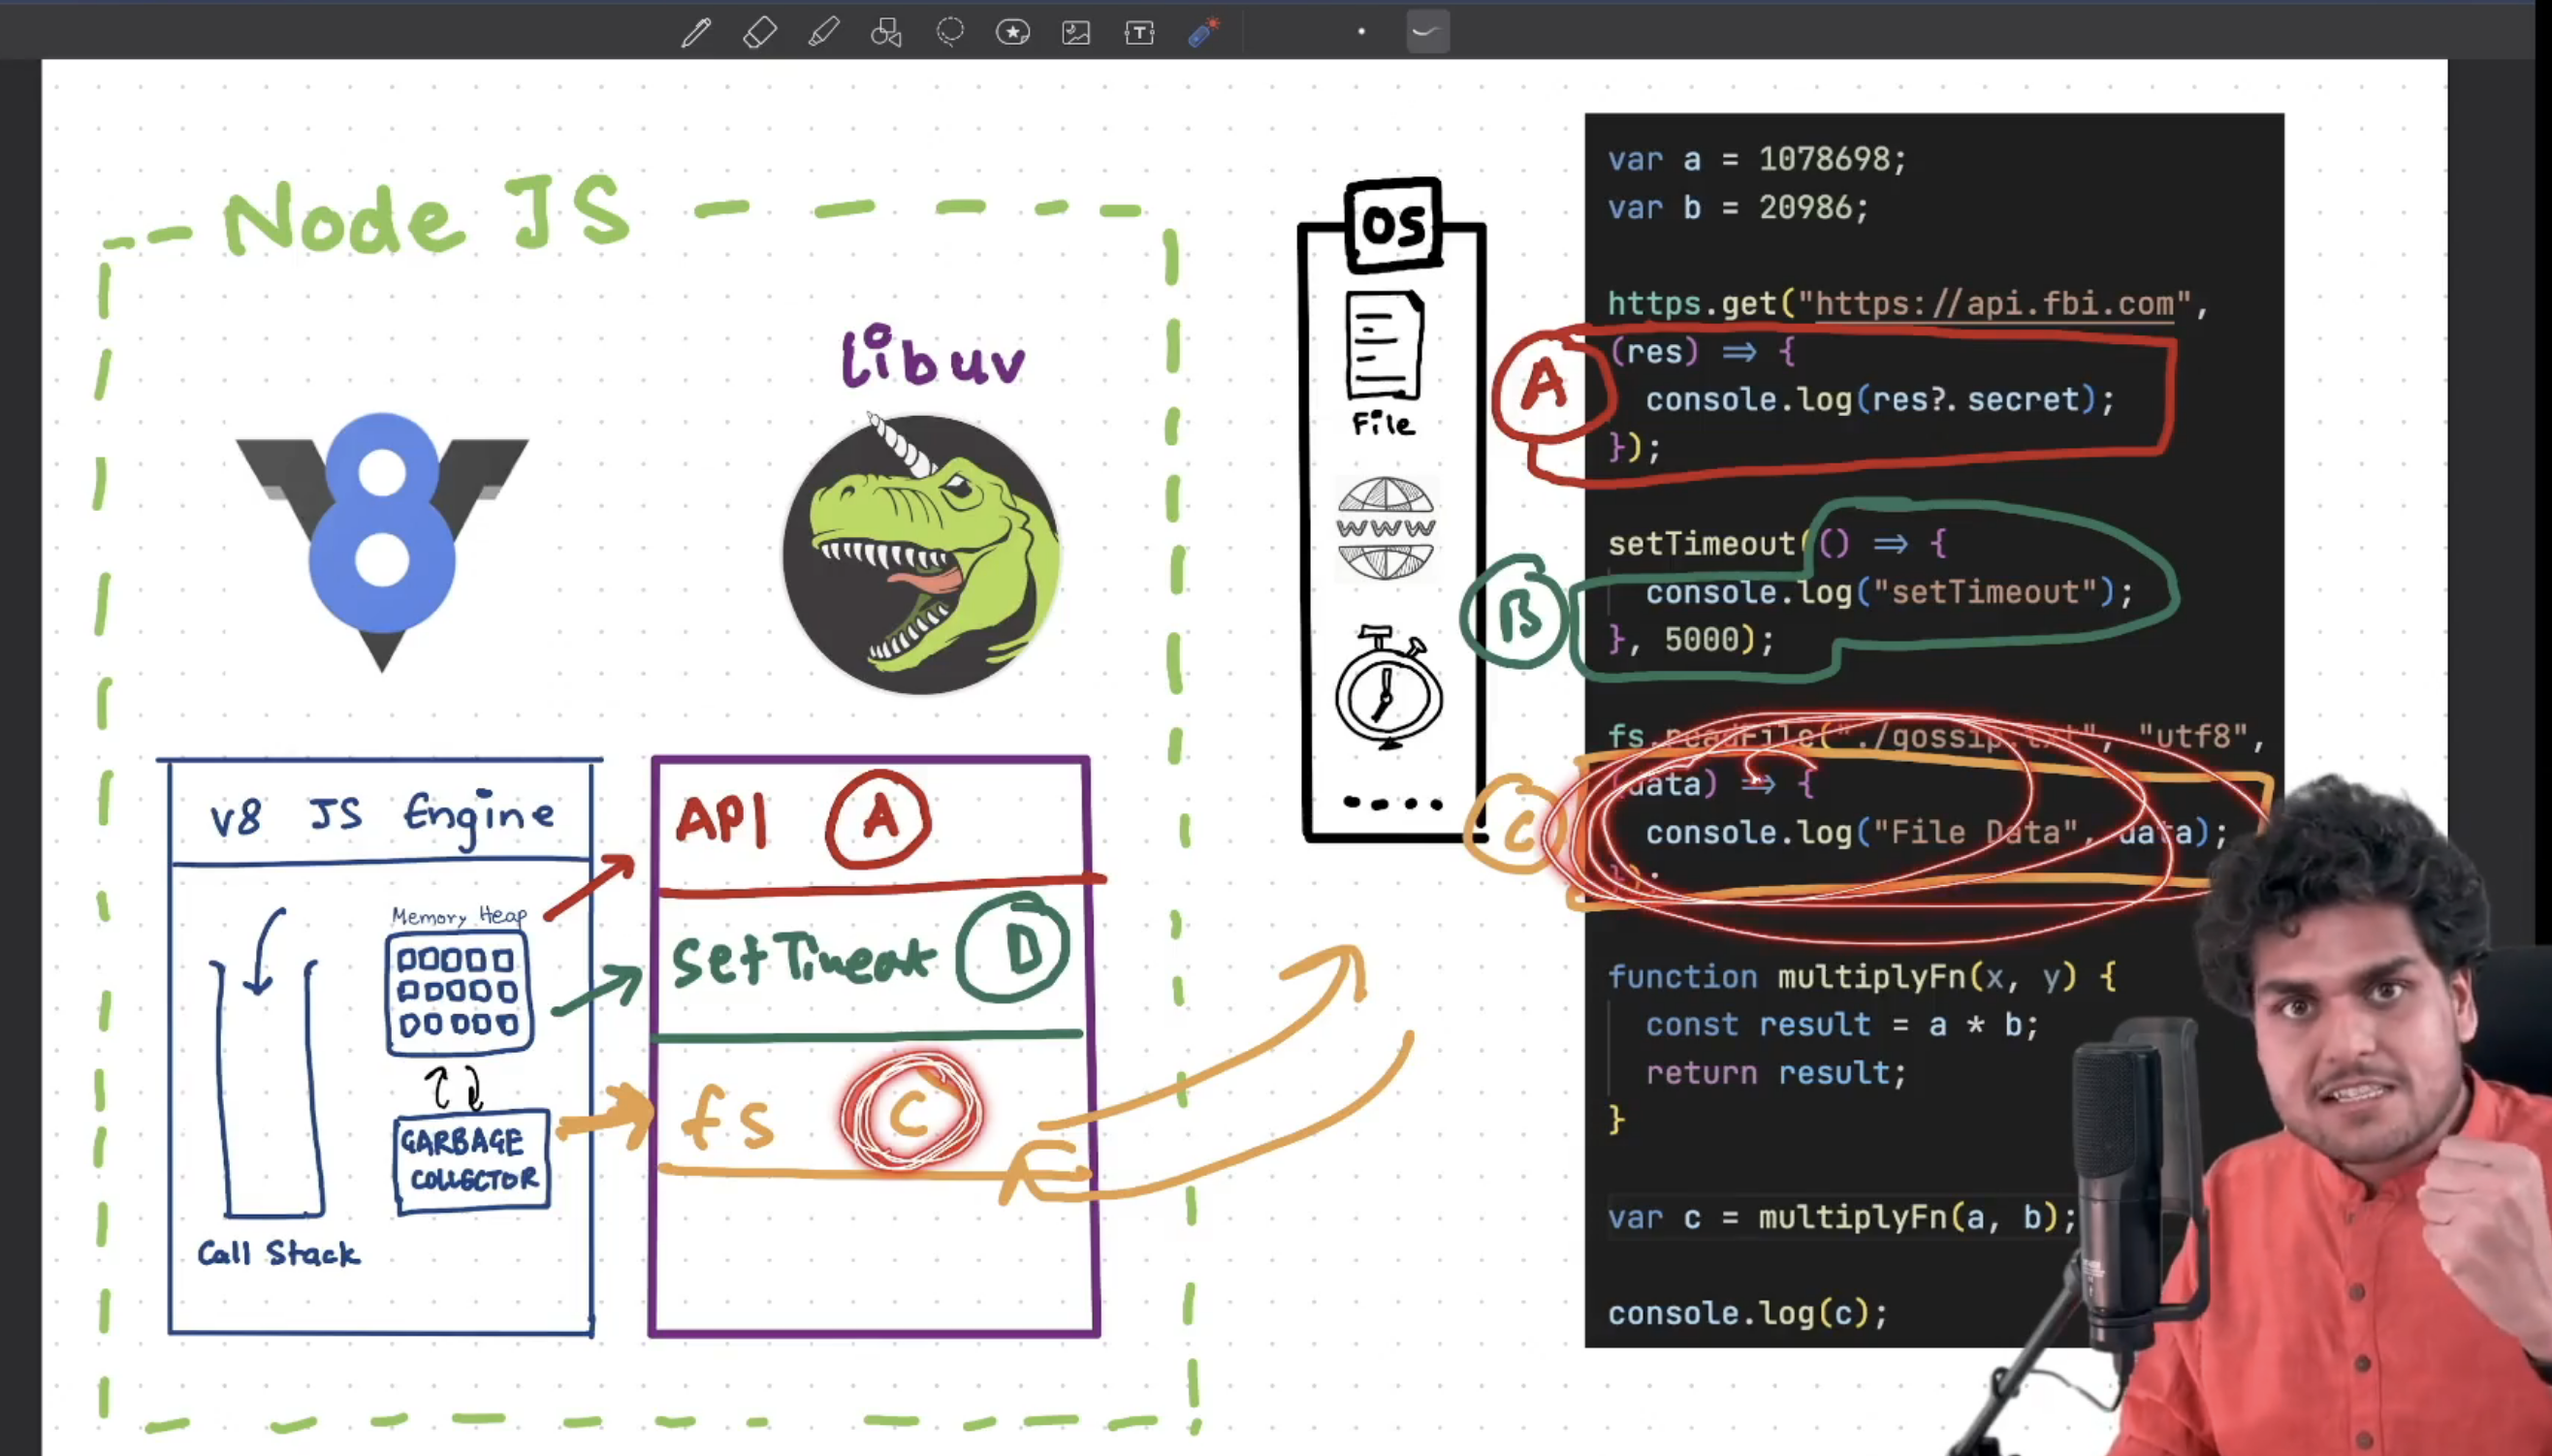 Node JS
libuv
V8
V8 JS Engine
Memory Heap
GARBAGE
COLLECTOR
Call Stack
API A
SetTimeout D
fs C
OS
File
WWW
A
B
C
var a = 1078698;
var b = 20986;
https.get("https://api.fbi.com",
(res) => {
console.log(res?.secret);
});
setTimeout(() => {
console.log("setTimeout");
}, 5000);
fs.readFile("./gossip.txt", "utf8",
(data) => {
console.log("File Data", data);
});
function multiplyFn(x, y) {
const result = a * b;
return result;
}
var c = multiplyFn(a, b);
console.log(c);